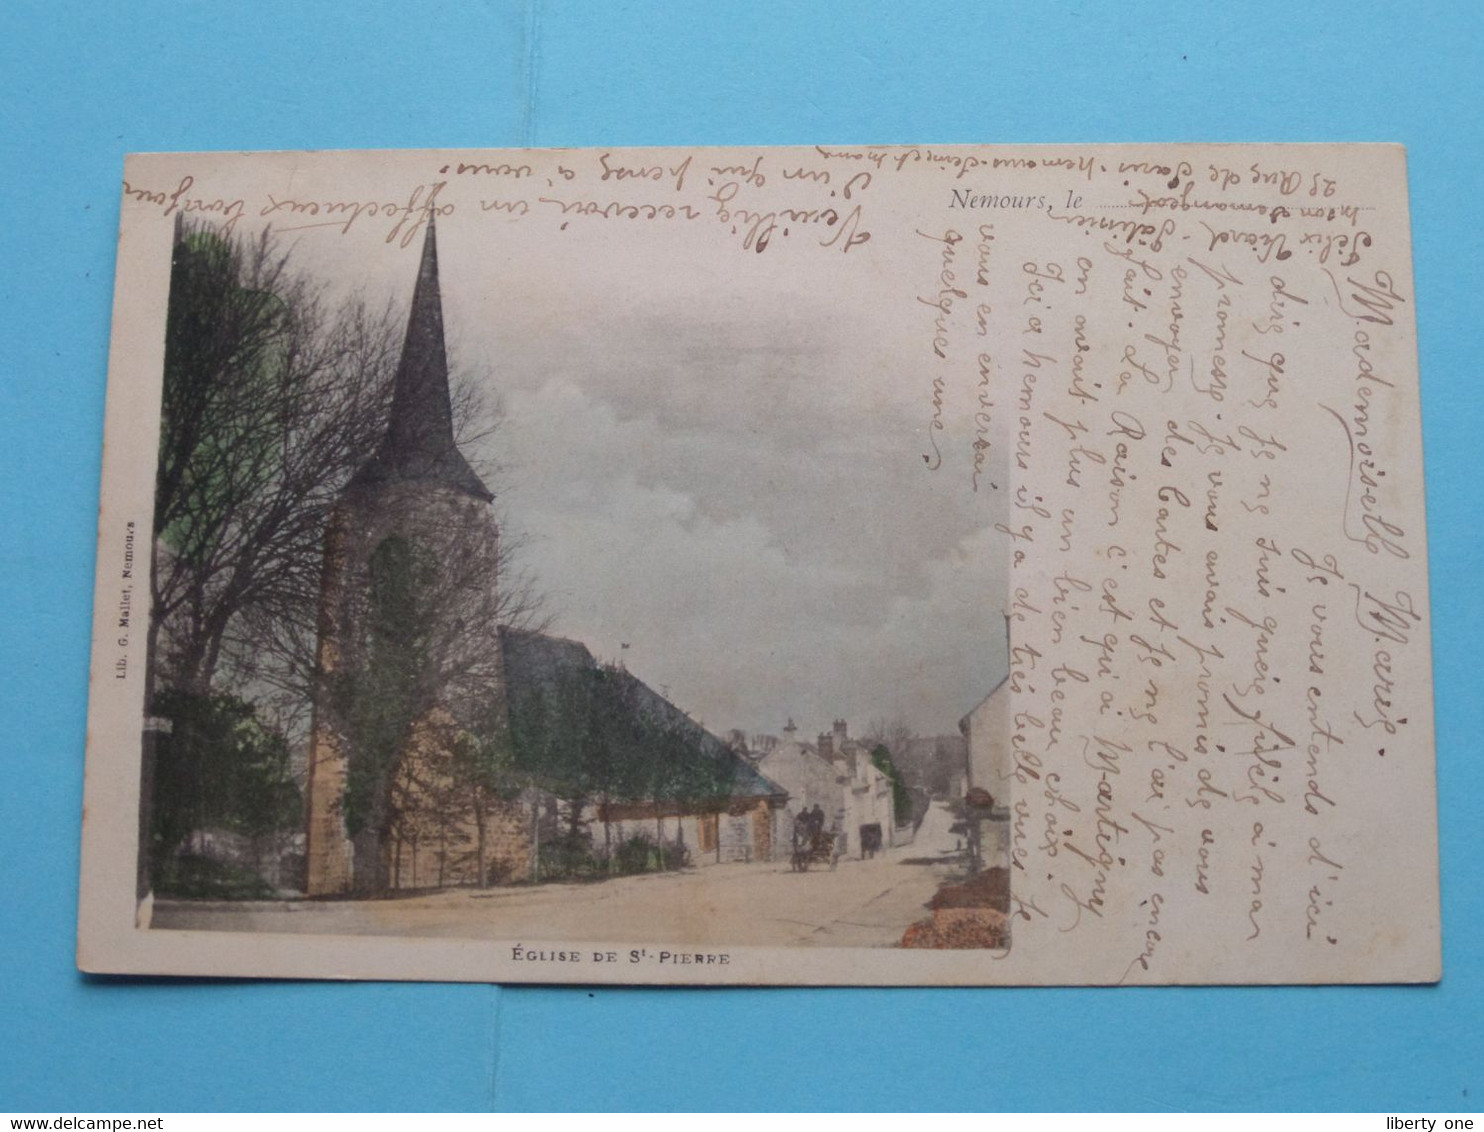 Nemours, le
Mademoiselle Marie.
Je vous entends d'ici
dire que je ne suis guère fidèle à ma
promesse. Je vous avais promis de vous
envoyer des Cartes et je ne l'ai pas encore
fait. La Raison c'est qu'à Martigny
on avait plus un bien beau choix.
Ici a Nemours il y a de très belle vues je
vous en enverrai
quelques une.
Veuillez recevoir un affectueux bonjour
d'un qui pense à vous.
Félix Viard - Pâtissier
Mson Demangeot
25 Rue de Paris. Nemours. Seine et Marne
ÉGLISE DE St-PIERRE
Lib. G. Mallet, Nemours
liberty one